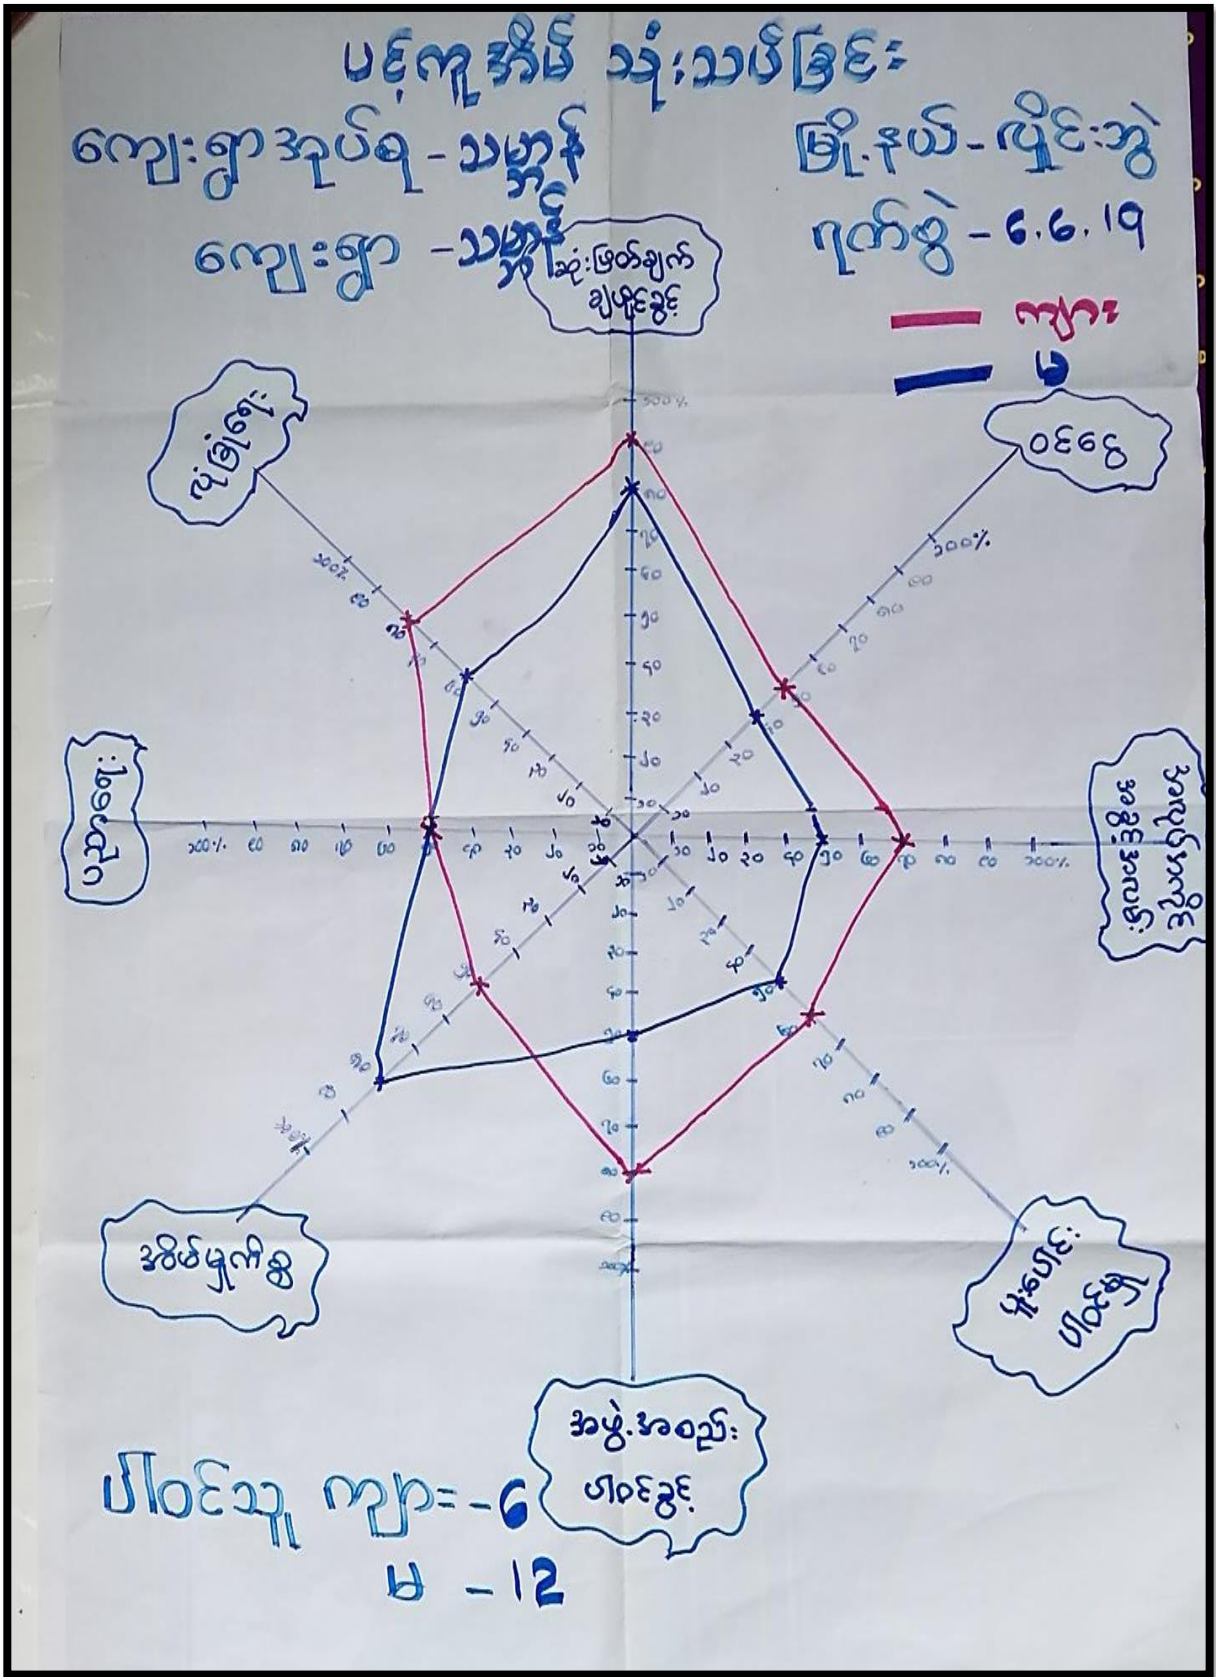 ပင့်ကူအိမ် သုံးသပ်ခြင်း
ကျေးရွာအုပ်စု - သမ္ဘုန်
မြို့နယ် - လှိုင်းဘွဲ
ကျေးရွာ - သမ္ဘုန်
ရက်စွဲ - 6.6.19
ကျား
မ
ဆုံးဖြတ်ချက်
ချပိုင်ခွင့်
ဝင်ငွေ
အလုပ်အကိုင်
အခွင့်အလမ်း
ပူးပေါင်း
ပါဝင်မှု
အဖွဲ့အစည်း
ပါဝင်ခွင့်
အိမ်မှုကိစ္စ
ပညာရေး
လုံခြုံရေး
၁၀၀%
၉၀
၈၀
၇၀
၆၀
၅၀
၄၀
၃၀
၂၀
၁၀
ပါဝင်သူ ကျား - 6
မ - 12